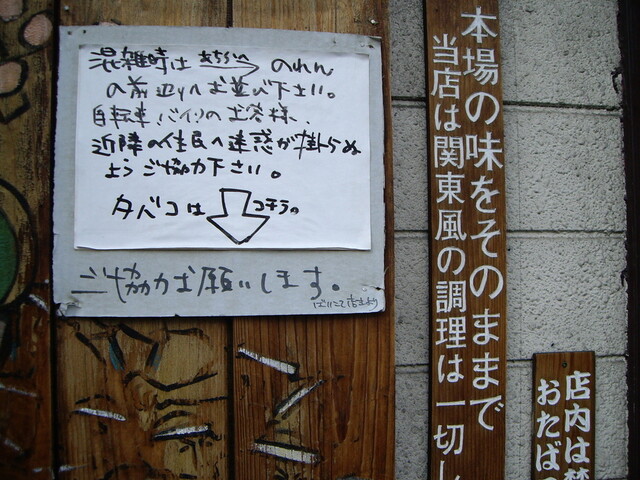 混雑時は あちらい のれん
の前辺りへお並び下さい。
自転車、バイクのお客様、
近隣の住民へ迷惑が掛らぬ
ようご協力下さい。
タバコは コチラ。
ご協力お願いします。
本場の味をそのままで
当店は関東風の調理は一切し
店内は禁
おたばこ